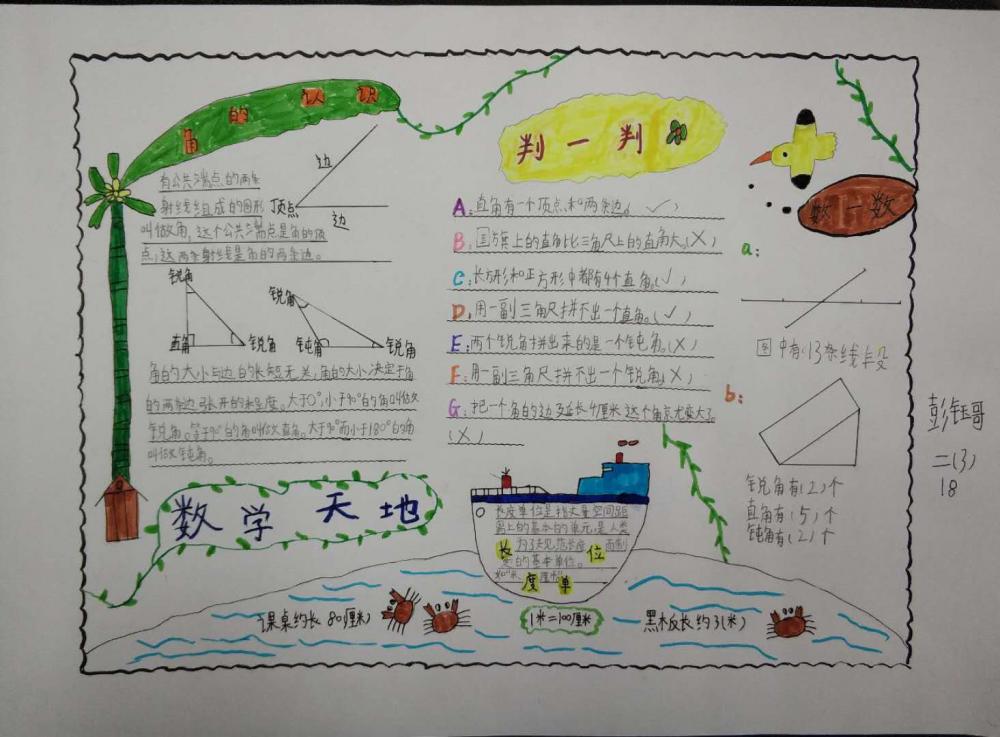 角的认识
有公共端点的两条
射线组成的图形
叫做角，这个公共端点是角的顶
点，这两条射线是角的两条边。
边
顶点
边
锐角
直角
锐角
锐角
钝角
锐角
角的大小与边的长短无关，角的大小决定于角
的两条边张开的程度。大于0°，小于90°的角叫做
锐角。等于90°的角叫做直角。大于90°而小于180°的角
叫做钝角。
数学天地
判一判
A：直角有一个顶点和两条边。（✓）
B：国旗上的直角比三角尺上的直角大。（X）
C：长方形和正方形中都有4个直角。（✓）
D：用一副三角尺拼不出一个直角。（✓）
E：两个锐角拼出来的是一个钝角。（X）
F：用一副三角尺拼不出一个锐角。（X）
G：把一个角的边延长4厘米这个角就变大了。
（X）
数一数
a：
图中有（13条线段
b：
锐角有（2）个
直角有（5）个
钝角有（2）个
彭钰哥
二（3）
18
长度单位是指丈量空间距
离上的基本的单元，是人类
为了规范长度而制
定的基本单位。
长度单位
课桌约长80（厘米）
1米=100厘米
黑板长约3（米）